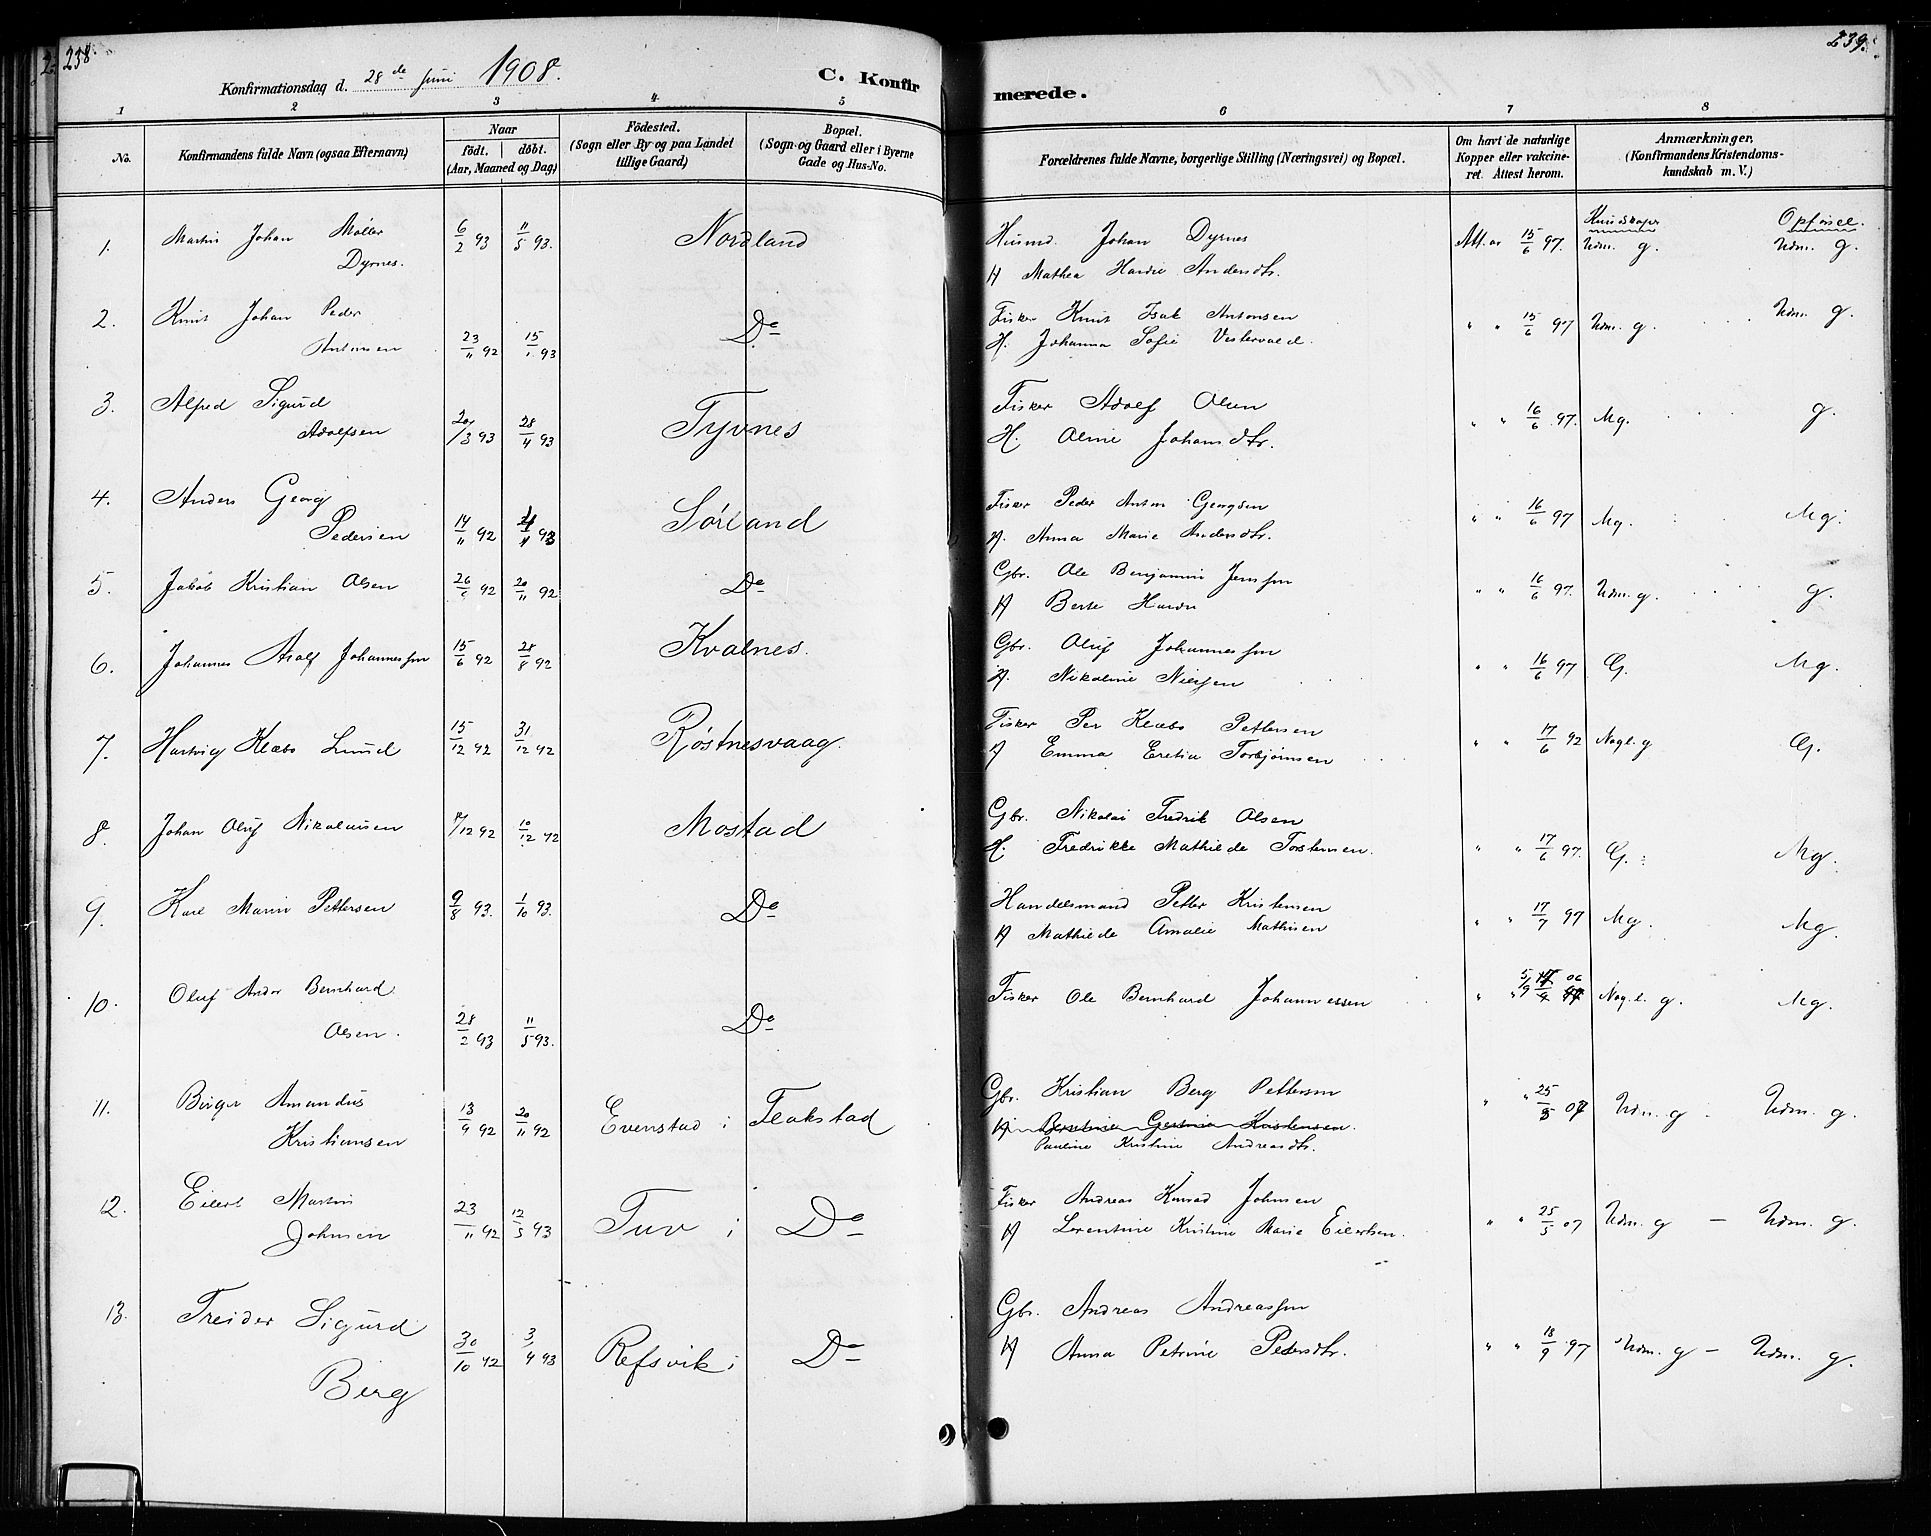 238.
Konfirmationsdag d. 28de Juni 1908.
C. Konfir
1 2 3 4. 5
No.
Konfirmandens fulde Navn (ogsaa Efternavn)
Naar
födt. döbt.
(Aar, Maaned og Dag)
Födested.
(Sogn eller By og paa Landet
tillige Gaard)
Bopæl.
(Sogn og Gaard eller i Byerne
Gade og Hus-No.
1. Martin Johan Møller 6/2 93 11/5 93. Nordland
Dyrnes.
2. Knut Johan Peder
Antonsen 23/11 92 15/1 93 Do
3. Alfred Sigurd
Adolfsen 20/3 93 28/4 93 Tyvnes
4. Anders Georg
Pedersen 14/11 92 93 Sørland
5. Jakob Kristian Olsen 26/ 92 20/11 92 Do
6. Johannes Adolf Johannessen 15/6 92 28/8 92 Kvalnes.
7. Hartvig Klæbo Lund 15/12 92 31/12 92 Røstnesvaag.
8. Johan Oluf Nikolaisen /12 92 10/12 92 Mostad
9. Karl Marin Pettersen 9/8 93. 1/10 93. Do
10. Oluf Andor Bernhard
Olsen. 28/2 93 11/5 93. Do
11. Birger Amandus
Kristiansen 13/9 92 20/11 92 Evenstad i Flakstad
12. Eilert Martin
Johnsen 23/11 92 12/3 93 Tuv i Do
13. Treider Sigurd
Berg 30/10 92 3/4 93 Refsvik i Do
239.
merede.
6 7 8
Forældrenes fulde Navne, borgerlige Stilling (Næringsvei) og Bopæl.
Om havt de naturlige
Kopper eller vakcine-
ret. Attest herom.
Anmærkninger,
(Konfirmandens Kristendoms-
kundskab m. V.)
Kundskaper Opførsel.
Husmd. Johan Dyrnes Att. av 15/6 97. Udm. g. Udm. g.
H Mathea Hardie Andersdtr.
Fisker Knut Isak Antonsen " " 15/6 97 Udm. g. Udm. g.
H. Johanna Sofie Vestervald.
Fisker Adolf Olsen " " 16/6 97. Mg. g.
H. Oline Johansdtr.
Fisker Peder Anton Georgsen " " 16/6 97 Mg. Mg.
H. Anna Marie Andersdtr.
Gbr. Ole Benjamin Jenssen " " 16/6 97. Udm. g. g.
H Berte
Gbr. Oluf Johannessen " " 16/6 97 G. Mg.
H. Nikoline Nielsen
Fisker Per Klæbo Pettersen " " 17/6 92 Nogl. g G.
H Emma Eretia Torbjørnsen
Gbr. Nikolai Fredrik Olsen
H. Fredrikke Mathilde Torstensen. " " 17/6 97. G. Mg.
Handelsmand Petter Kristensen " " 17/7 97 Mg. Mg.
H Mathilde Amalie Mathisen
Fisker Ole Bernhard Johannessen " " 5/9 06 Nogl. g. Mg.
Gbr. Kristian Berg Pettersen " " 25/5 07 Udm. g - Udm. g.
H
Pauline Kristine Andreasdtr.
Fisker Andreas Konrad Johnsen " " 25/5 07 Udm. g - Udm. g.
H Lorentine Kristine Marie Eilertsen.
Gbr. Andreas Andreassen
H Anna Petrine Pedersdtr. " " 18/9 97 Udm. g - Udm. g.